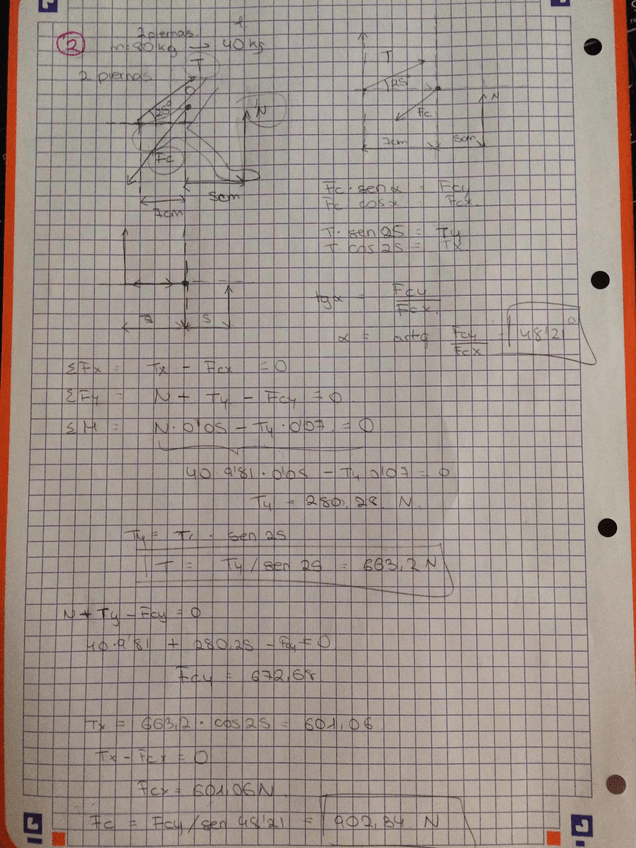 2 piernas
②
m=80kg → 40kg
2 piernas
T
25°
N
Fc
5cm
7cm
T
25°
Fc
N
7cm
5cm
Fc · sen α = Fcy
Fc cos α = Fcx
T · sen 25 = Ty
T cos 25 = Tx
7
5
tg α = Fcy / Fcx
α = artg Fcy / Fcx = 48'21°
ΣFx = Tx - Fcx = 0
ΣFy = N + Ty - Fcy = 0
ΣM = N · 0'05 - Ty · 0'07 = 0
40 · 9'81 · 0'05 - Ty 0'07 = 0
Ty = 280,28 N
Ty = T · sen 25
T = Ty / sen 25 = 663,2 N
N + Ty - Fcy = 0
40 · 9'81 + 280,28 - Fcy = 0
Fcy = 672,68
Tx = 663,2 · cos 25 = 601,06
Tx - Fcx = 0
Fcx = 601,06 N
Fc = Fcy / sen 48'21 = 902,34 N